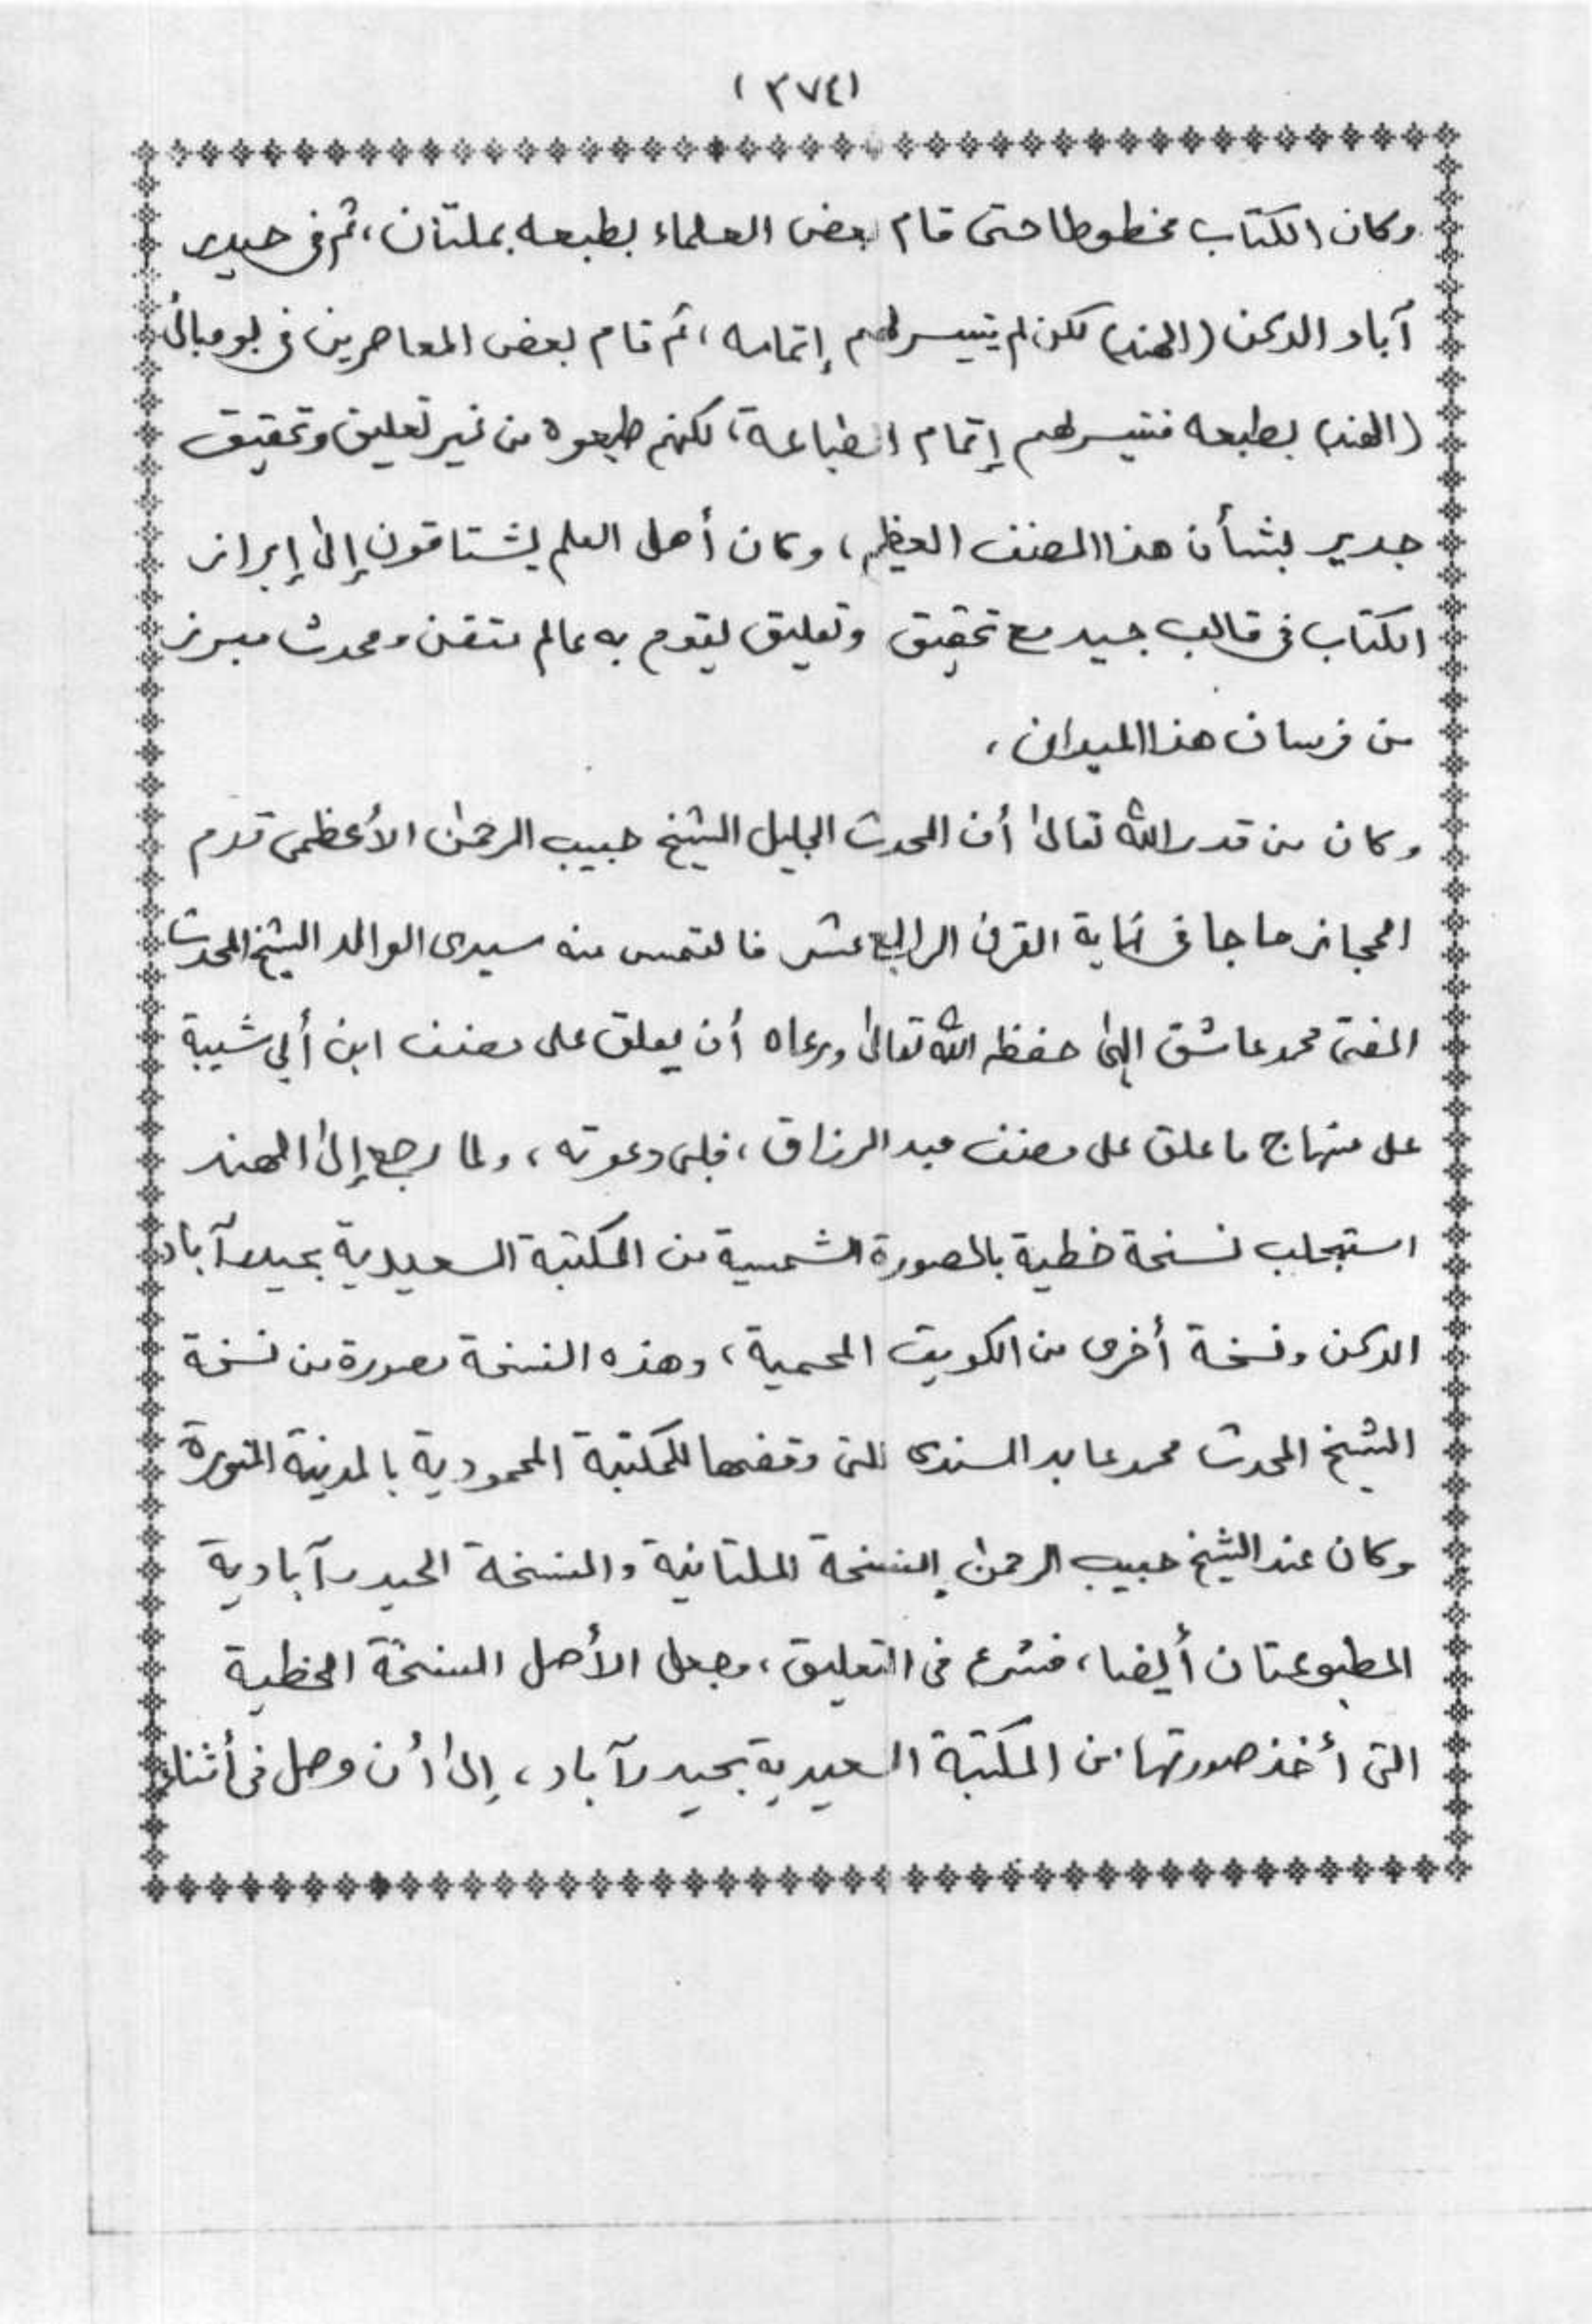 (٣٧٤)
وكان الكتاب مخطوطا حتى قام بعض العلماء بطبعه بملتان، ثم فى حيدر
آباد الدكن (الهند) لكن لم يتيسر لهم إتمامه، ثم قام بعض المعاصرين فى بومبائى
(الهند) بطبعه فتيسر لهم إتمام الطباعة، لكنهم طبعوه من غير تعليق وتحقيق
جدير بشأن هذا المصنف العظيم، وكان أهل العلم يشتاقون إلى إبراز
الكتاب فى قالب جيد مع تحقيق وتعليق يقوم به عالم متقن ومحدث مبرز
من فرسان هذا الميدان،
وكان من قدر الله تعالى أن المحدث الجليل الشيخ حبيب الرحمن الأعظمى قدم
الحجاز حاجا فى نهاية القرن الرابع عشر فالتمس منه سيدى الوالد الشيخ المحدث
المفتى محمد عاشق إلهى حفظه الله تعالى ورعاه أن يعلق على مصنف ابن أبي شيبة
على منهاج ما علق على مصنف عبد الرزاق، فلبى دعوته، ولما رجع إلى الهند
استجلب نسخة خطية بالصورة الشمسية من المكتبة السعيدية بحيدرآباد
الدكن ونسخة أخرى من الكويت المحمية، وهذه النسخة مصورة من نسخة
الشيخ المحدث محمد عابد السندى التى وقفها للمكتبة المحمودية بالمدينة المنورة
وكان عند الشيخ حبيب الرحمن النسخة الملتانية والنسخة الحيدرآبادية
المطبوعتان أيضا، فشرع فى التعليق، وجعل الأصل النسخة الخطية
التى أخذ صورتها من المكتبة السعيدية بحيدرآباد، إلى أن وصل فى أثناء